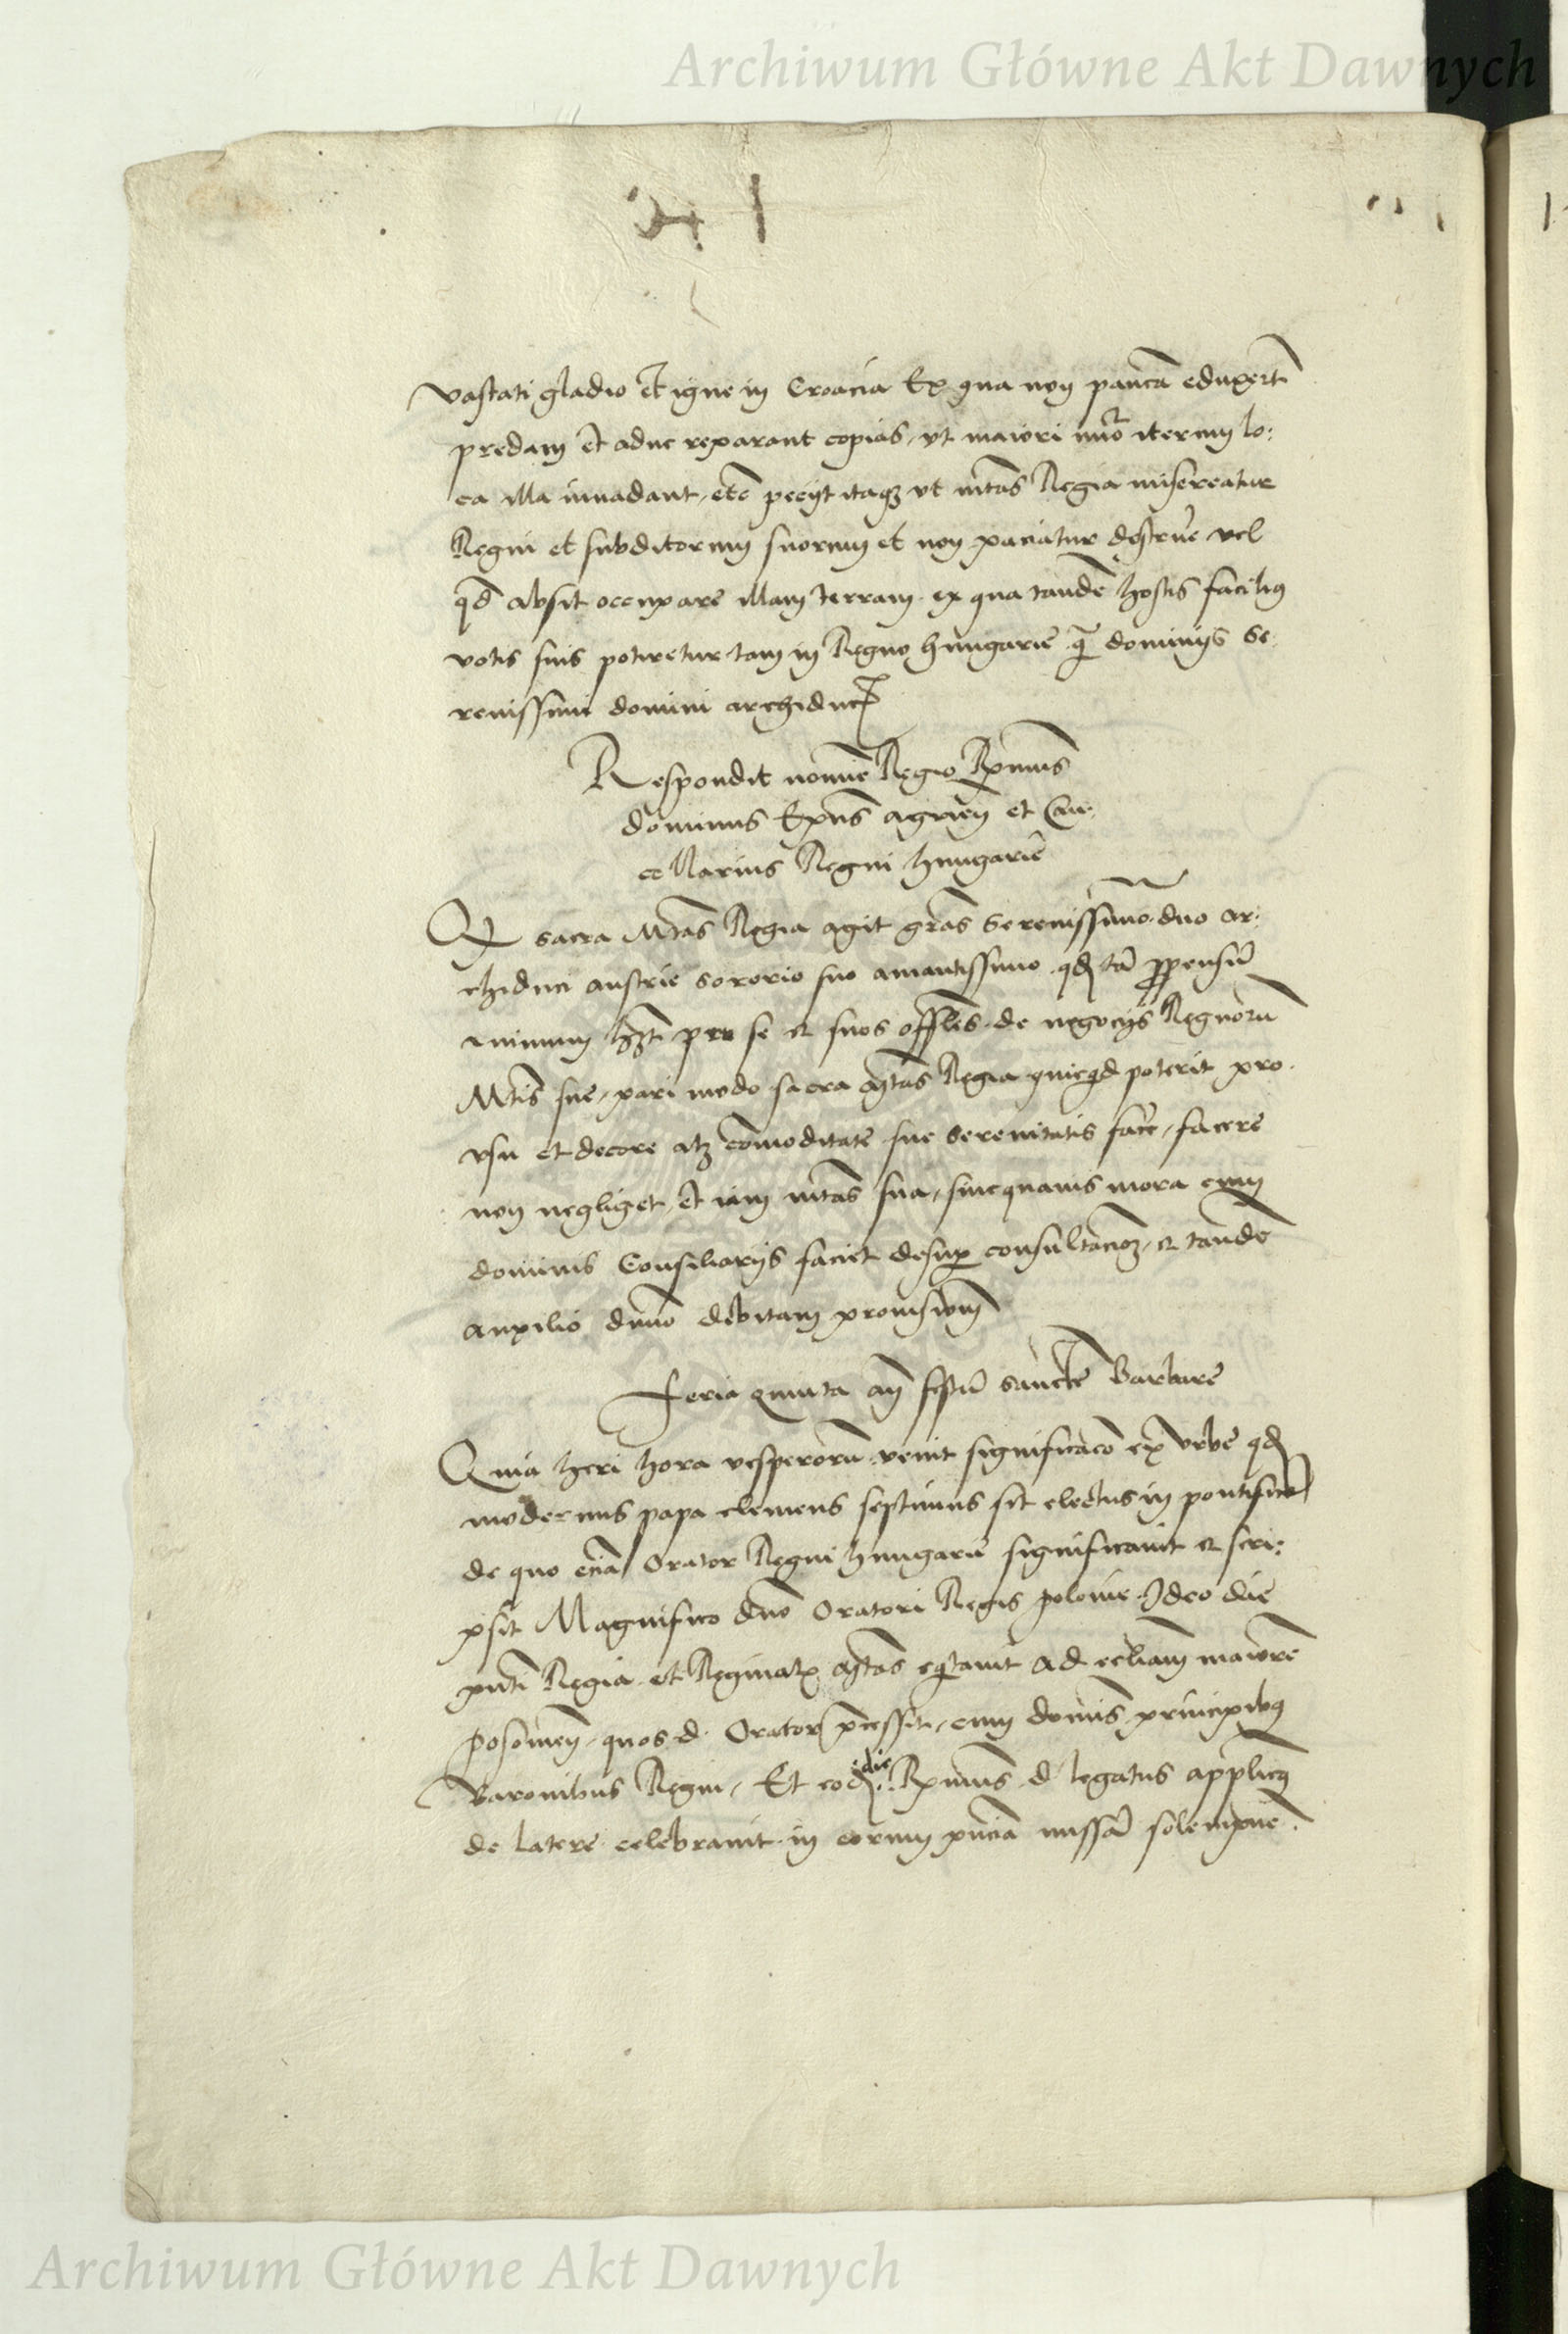 Archiwum Główne Akt Dawnych
vastati gladio et igne in Croacia Ex qua non paucã eduxerũt
predam et aduc reparant copias, vt maiori nũo iterum lo:
ca illa inuadant, etc̃ peciit itaqȝ vt mtas̃ Regia misereatur
Regni et subditorum suorum et non paciatur destrue᷑ vel
qd̃ absit occupare illam terram ex qua tandẽ hostis faciliꝰ
votis suis potiretur tam in Regno hungarie q̃ dominijs Se:
renissimi domini archiducꝭ
Respondit nomiẽ Regio Rx̃mus
dominus Ep̃us agrien̄ et Can:
cellarius Regni hungarie
Qꝫ sacra Mtas̃ Regia agit gras̃ Serenissimo dno ar:
chiduci austrie sororio suo amantissimo qd̃ tã ꝓpensũ
animum hꝫt pro se et suos offles̃ de negocijs Regnorũ
Mtis̃ sue, pari modo sacra Mtas̃ Regia quicqd̃ poterit pro
vsu et decore atqȝ cõmoditate sue serenitatis fac᷑e, facere
non negliget, et iam mtas̃ sua, sine quauis mora cum
dominis Consiliarijs faciet desuꝑ consultacioȝ, et tandẽ
auxilio diuio᷑ debitam prouisiom̃
Feria quinta an̄ festũ sancte Barbare
Quia heri hora vesperorũ venit significacõ ex vrbe qd̃
modernus papa clemens septimus sit electus in pontificẽ
de quo eciã Orator Regni hungarie significauit et scri:
psit Magnifico dño Oratori Regis polonie Ideo die
pñti Regia et Reginalꝭ Mtas̃ eq̃tauit ad eccliam̃ maiorẽ
posonien̄, quos d. Orator p̃cessit, cum domĩs principibꝰ
Baronibus Regni, Et eod̃ die Rx̃mus d legatus applicꝰ
de latere celebrauit in eorum pñciã missã solempnẽ.
Archiwum Główne Akt Dawnych